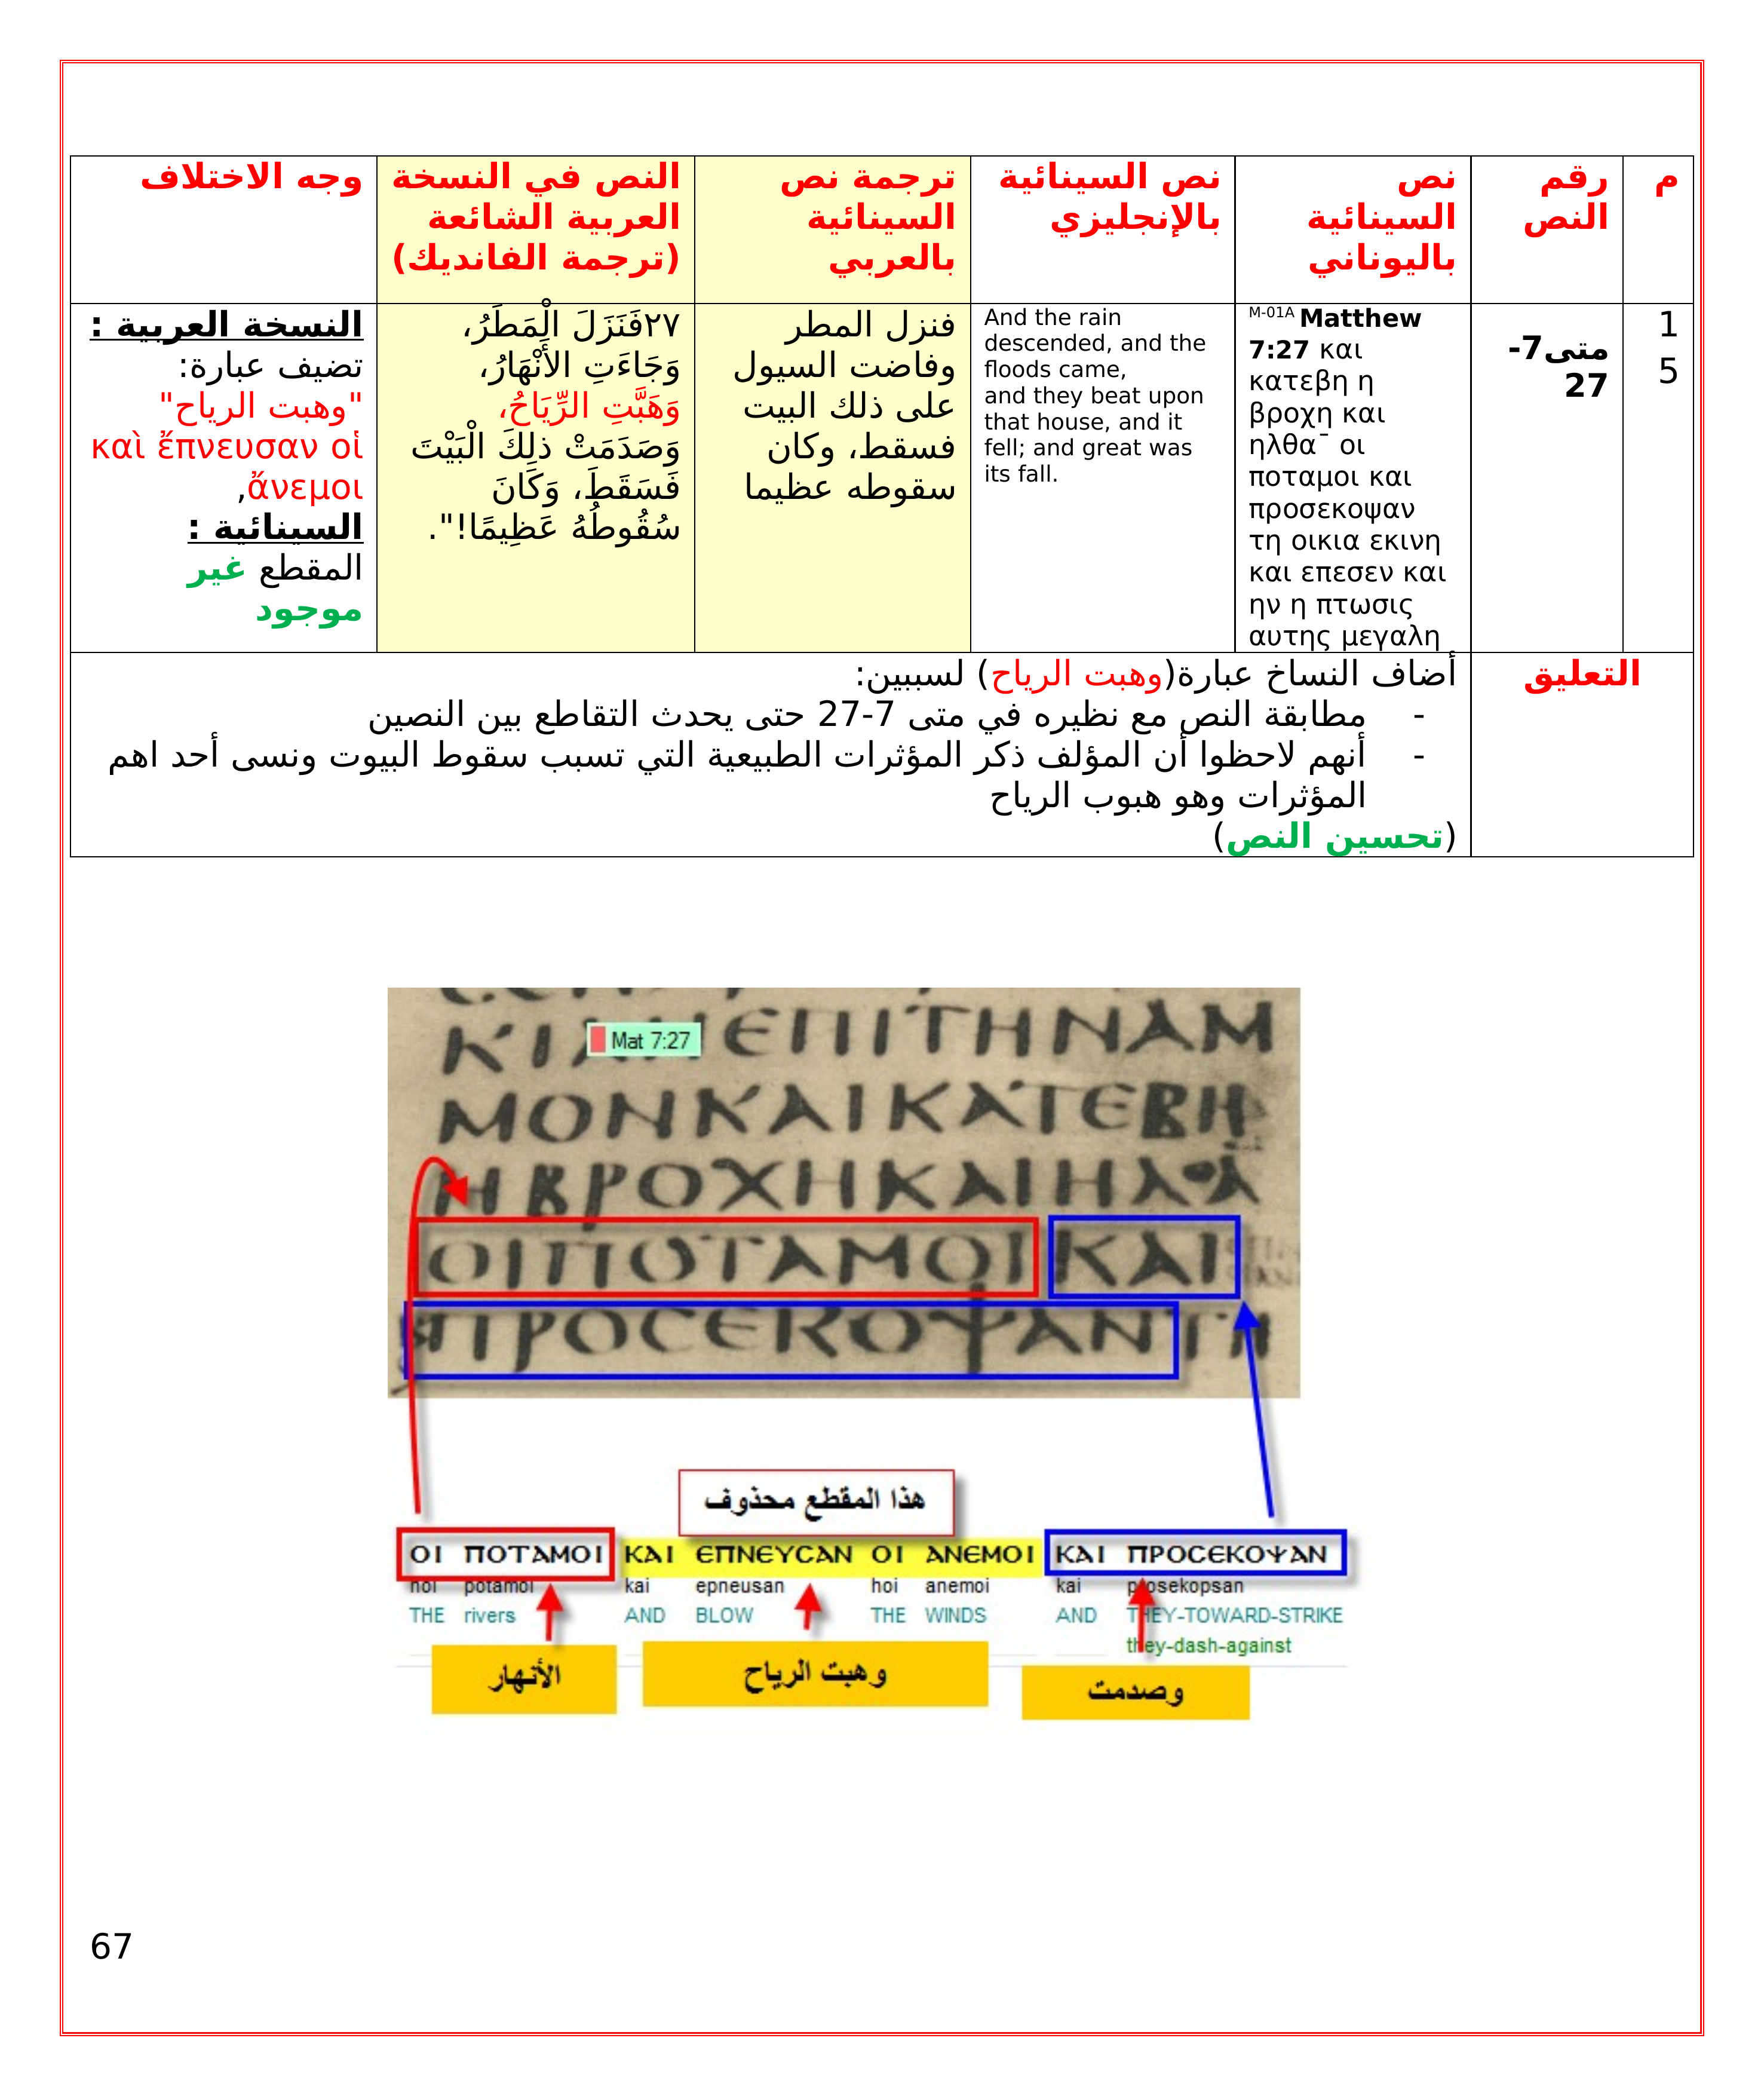 م
رقم
النص
نص
السينائية
باليوناني
نص السينائية
بالإنجليزي
ترجمة نص
السينائية
بالعربي
النص في النسخة
العربية الشائعة
(ترجمة الفانديك)
وجه الاختلاف
1
5
متى7-
27
M-01A Matthew
7:27 και
κατεβη η
βροχη και
ηλθα¯ οι
ποταμοι και
προσεκοψαν
τη οικια εκινη
και επεσεν και
ην η πτωσις
αυτης μεγαλη
And the rain
descended, and the
floods came,
and they beat upon
that house, and it
fell; and great was
its fall.
فنزل المطر
وفاضت السيول
على ذلك البيت
فسقط، وكان
سقوطه عظيما
٢٧فَنَزَلَ الْمَطَرُ،
وَجَاءَتِ الأَنْهَارُ،
وَهَبَّتِ الرِّيَاحُ،
وَصَدَمَتْ ذلِكَ الْبَيْتَ
فَسَقَطَ، وَكَانَ
سُقُوطُهُ عَظِيمًا!".
النسخة العربية :
تضيف عبارة:
"وهبت الرياح"
καὶ ἔπνευσαν οἱ
ἄνεμοι,
السينائية :
المقطع غير
موجود
التعليق
أضاف النساخ عبارة(وهبت الرياح) لسببين:
- مطابقة النص مع نظيره في متى 7-27 حتى يحدث التقاطع بين النصين
- أنهم لاحظوا أن المؤلف ذكر المؤثرات الطبيعية التي تسبب سقوط البيوت ونسى أحد اهم
المؤثرات وهو هبوب الرياح
(تحسين النص)
Mat 7:27
ΕΠΙΤΗΝΑΜ
ΜΟΝΚΑΙΚΑΤΕΒΗ
ΗΒΡΟΧΗΚΑΙΗΛΘΑ
ΟΙΠΟΤΑΜΟΙΚΑΙ
ΠΡΟCΕΚΟΨΑΝΤΗ
هذا المقطع محذوف
ΟΙ ΠΟΤΑΜΟΙ ΚΑΙ ΕΠΝΕΥCΑΝ ΟΙ ΑΝΕΜΟΙ ΚΑΙ ΠΡΟCΕΚΟΨΑΝ
hoi potamoi kai epneusan hoi anemoi kai prosekopsan
THE rivers AND BLOW THE WINDS AND THEY-TOWARD-STRIKE
they-dash-against
الأنهار
وهبت الرياح
وصدمت
67